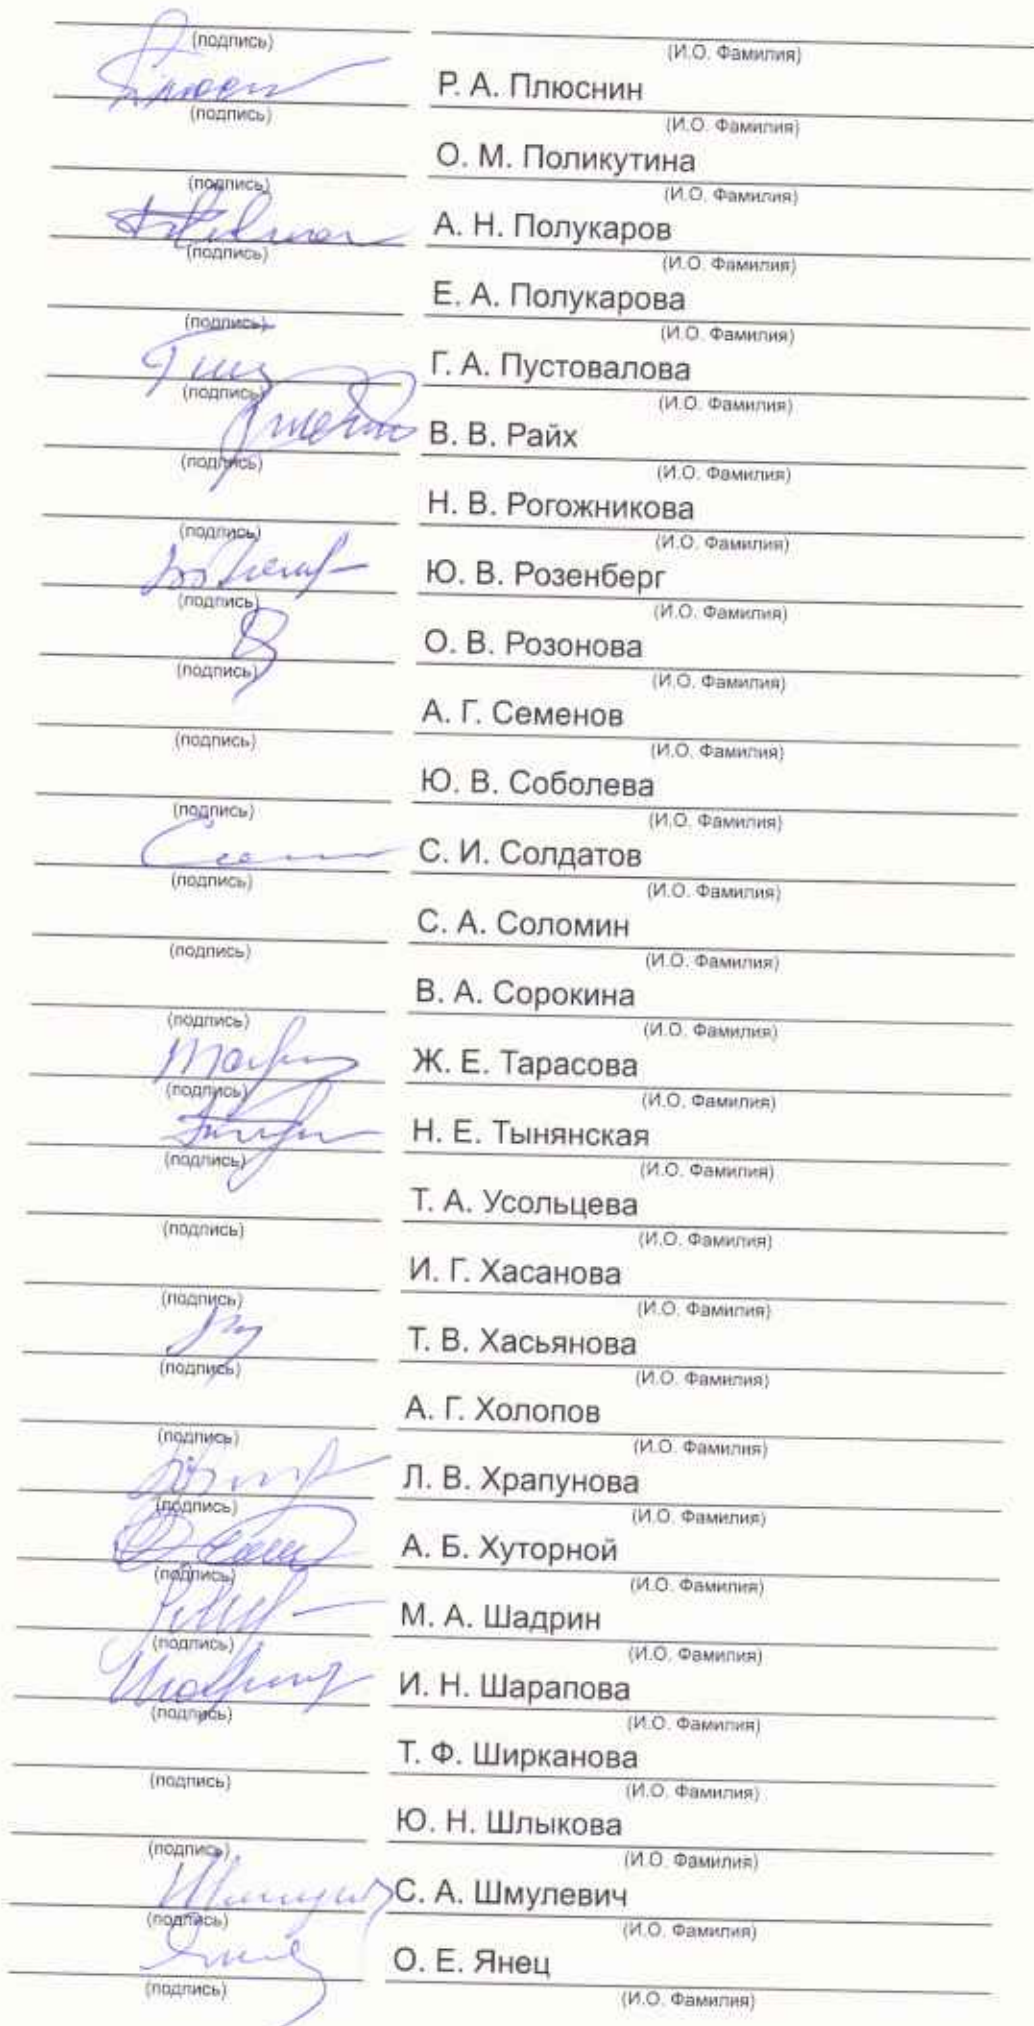 (подпись) (И.О. Фамилия)
Р. А. Плюснин
(подпись) (И.О. Фамилия)
О. М. Поликутина
(подпись) (И.О. Фамилия)
А. Н. Полукаров
(подпись) (И.О. Фамилия)
Е. А. Полукарова
(подпись) (И.О. Фамилия)
Г. А. Пустовалова
(подпись) (И.О. Фамилия)
В. В. Райх
(подпись) (И.О. Фамилия)
Н. В. Рогожникова
(подпись) (И.О. Фамилия)
Ю. В. Розенберг
(подпись) (И.О. Фамилия)
О. В. Розонова
(подпись) (И.О. Фамилия)
А. Г. Семенов
(подпись) (И.О. Фамилия)
Ю. В. Соболева
(подпись) (И.О. Фамилия)
С. И. Солдатов
(подпись) (И.О. Фамилия)
С. А. Соломин
(подпись) (И.О. Фамилия)
В. А. Сорокина
(подпись) (И.О. Фамилия)
Ж. Е. Тарасова
(подпись) (И.О. Фамилия)
Н. Е. Тынянская
(подпись) (И.О. Фамилия)
Т. А. Усольцева
(подпись) (И.О. Фамилия)
И. Г. Хасанова
(подпись) (И.О. Фамилия)
Т. В. Хасьянова
(подпись) (И.О. Фамилия)
А. Г. Холопов
(подпись) (И.О. Фамилия)
Л. В. Храпунова
(подпись) (И.О. Фамилия)
А. Б. Хуторной
(подпись) (И.О. Фамилия)
М. А. Шадрин
(подпись) (И.О. Фамилия)
И. Н. Шарапова
(подпись) (И.О. Фамилия)
Т. Ф. Ширканова
(подпись) (И.О. Фамилия)
Ю. Н. Шлыкова
(подпись) (И.О. Фамилия)
С. А. Шмулевич
(подпись) (И.О. Фамилия)
О. Е. Янец
(подпись) (И.О. Фамилия)